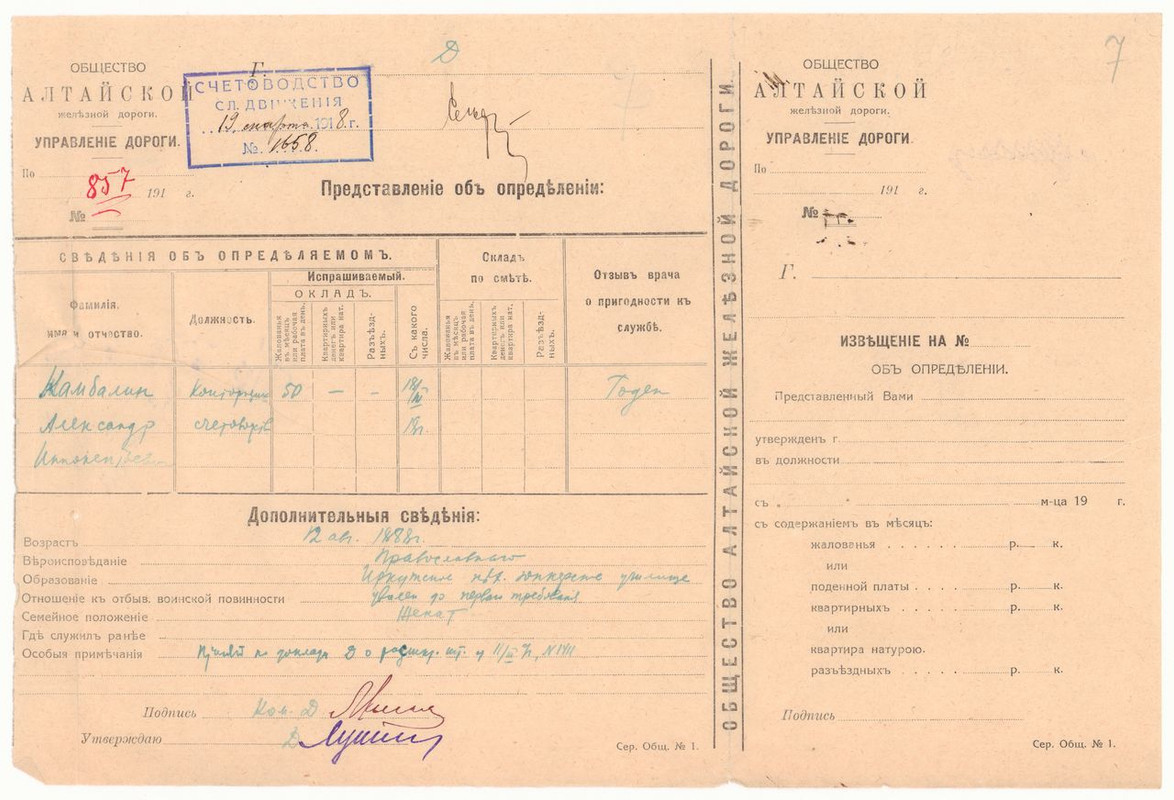 ОБЩЕСТВО
АЛТАЙСКОЙ
желѣзной дороги.
УПРАВЛЕНІЕ ДОРОГИ.
По
857
191 г.
№
СЧЕТОВОДСТВО
СЛ. ДВИЖЕНІЯ
19 марта 1918 г.
№ 1658.
Г. Д
Представленіе объ опредѣленіи:
СВѢДѢНІЯ ОБЪ ОПРЕДѢЛЯЕМОМЪ.
Фамилія,
имя и отчество.
Должность.
Испрашиваемый.
ОКЛАДЪ.
Жалованья въ мѣсяцъ или рабочая плата въ день.
Квартирныхъ денегъ или квартира нат.
Разъѣздныхъ.
Съ какого числа.
Складъ
по смѣтѣ.
Жалованья въ мѣсяцъ или рабочая плата въ день.
Квартирныхъ денегъ или квартира нат.
Разъѣздныхъ.
Отзывъ врача
о пригодности къ
службѣ.
Камбалин 50 — - 18/III Годен
Александр 18г.
Дополнительныя свѣдѣнія:
Возрастъ 12 ав. 1888г.
Вѣроисповѣданіе Православного
Образованіе Иркутское училище
Отношеніе къ отбыв. воинской повинности до требован
Семейное положеніе Женат
Гдѣ служилъ ранѣе
Особыя примѣчанія по докладу Д о
Подпись
Утверждаю Д
Сер. Общ. № 1.
ОБЩЕСТВО АЛТАЙСКОЙ ЖЕЛѢЗНОЙ ДОРОГИ.
7
ОБЩЕСТВО
АЛТАЙСКОЙ
желѣзной дороги.
УПРАВЛЕНІЕ ДОРОГИ.
По
191 г.
№
Г.
ИЗВѢЩЕНІЕ НА №
ОБЪ ОПРЕДѢЛЕНІИ.
Представленный Вами
утвержденъ г
въ должности
съ м-ца 19 г.
съ содержаніемъ въ мѣсяцъ:
жалованья р. к.
или
поденной платы р. к.
квартирныхъ р. к.
или
квартира натурою.
разъѣздныхъ р. к.
Подпись
Сер. Общ. № 1.